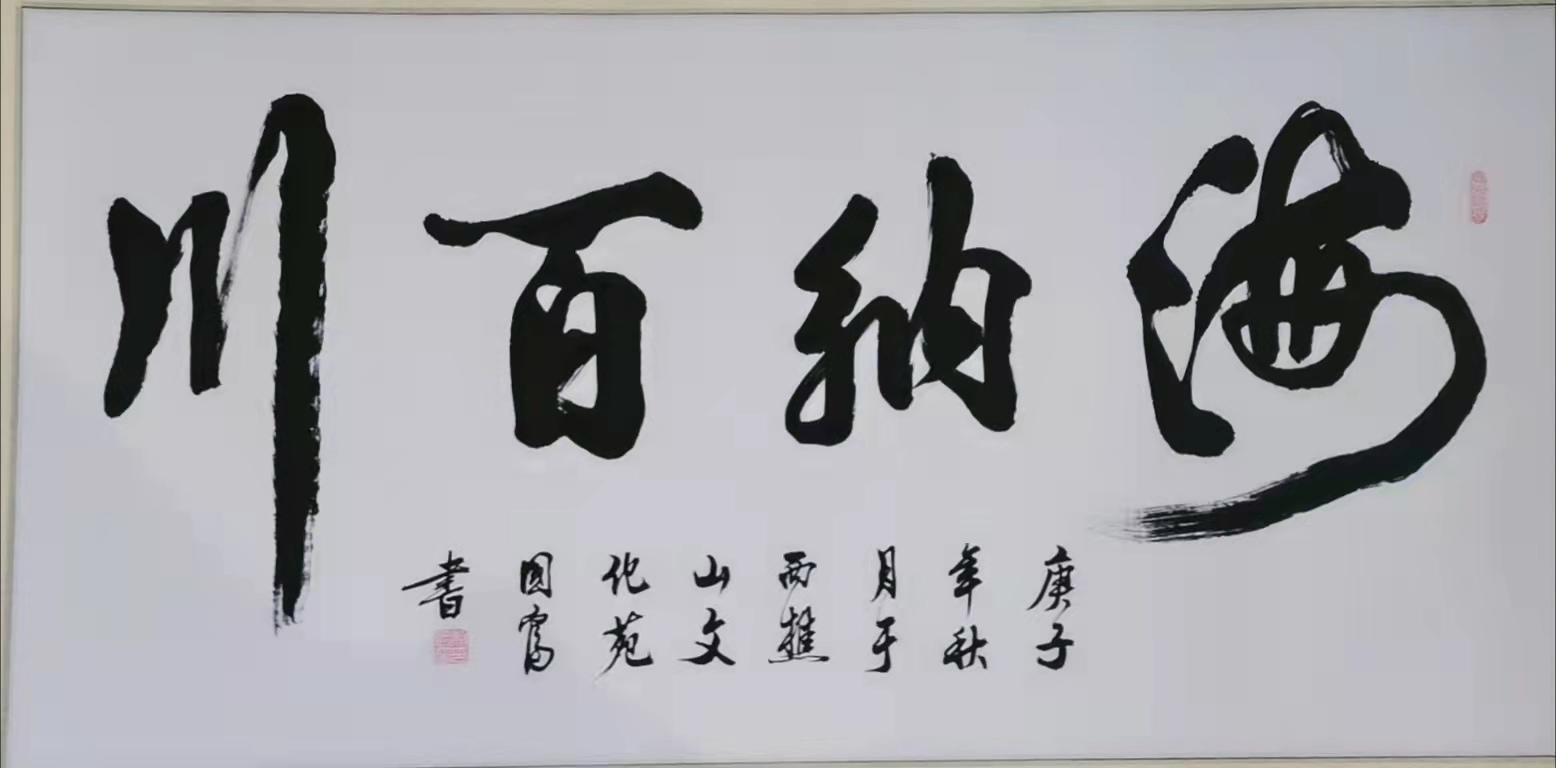 海納百川
庚子
年秋
月于
西樵
山文
化苑
國富
書